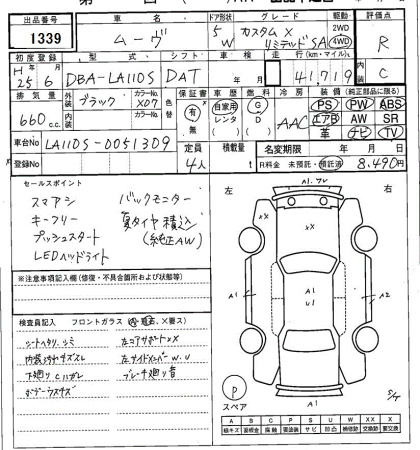 出品番号 車名 ドア形状 グレード 駆動 評価点
1339 ムーヴ 5W カスタム X リミテッド SA 2WD 4WD R
初度登録 型式 シフト 車検 走行(km・マイル) 内装
H25年6月 DBA-LA110S DAT 年 月 41,719 C
排気量 外装 カラーNo. 色替 保証書 車歴 燃料 冷房 装備 (純正部品に限る)
660cc. ブラック X07 有 無 自家用 レンタ G D AAC PS PW ABS
エアB AW SR
革 ナビ TV
車台No LA110S-0051309 定員 積載量 名変期限 年 月 日
登録No 4人 t R料金 未預託・預託済 8,490円
セールスポイント
スマアシ バックモニター
キーフリー 夏タイヤ積込
プッシュスタート (純正AW)
LEDヘッドライト
※注意事項記入欄(修復・不具合箇所および状態等)
検査員記入 フロントガラス
シートヘタリ、シミ 左コアサポートXX
内装汚れキズスレ 左サイドメンバーW.U
下廻りCハガレ ブレーキ廻り音
ボデーウスキズ
左 右
A1.ワレ
XX
XX
A1 A1 U1 A2
P
スペア A1 S/T
A B C P S U W X XX
線キズ 要板金 腐蝕 要塗装 サビ 凹凸 補修跡 要交換 交換跡